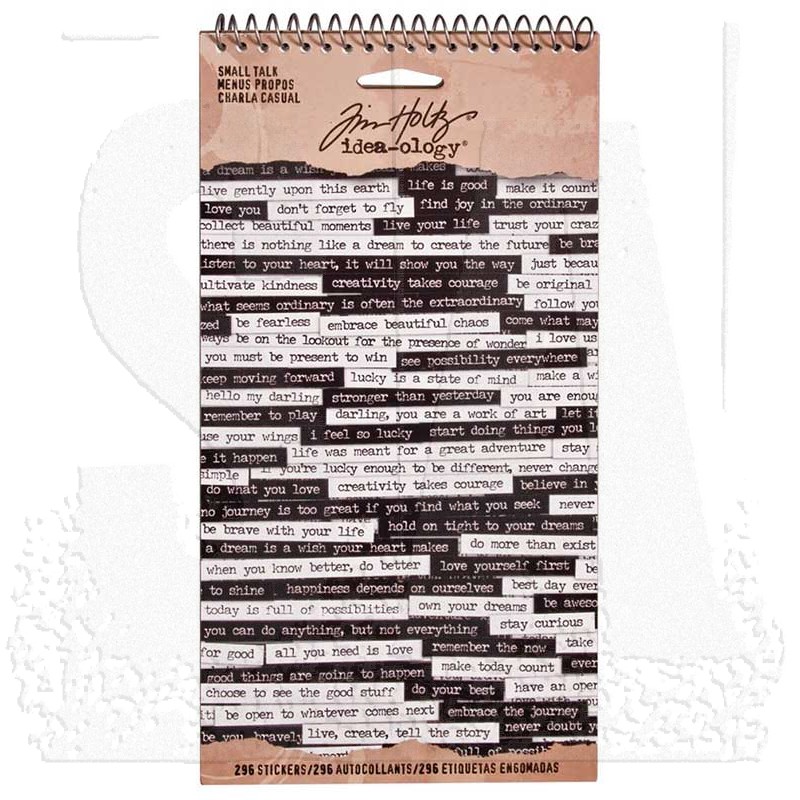 SMALL TALK
MENUS PROPOS
CHARLA CASUAL
Tim Holtz
idea-ology®
a dream is a wish makes
live gently upon this earth life is good make it count
love you don't forget to fly find joy in the ordinary
collect beautiful moments live your life trust your craz
there is nothing like a dream to create the future be bra
isten to your heart, it will show you the way just becau
ultivate kindness creativity takes courage be original
what seems ordinary is often the extraordinary follow you
zed be fearless embrace beautiful chaos come what may
ways be on the lookout for the presence of wonder i love us
you must be present to win see possibility everywhere
keep moving forward lucky is a state of mind make a wi
hello my darling stronger than yesterday you are enoug
remember to play darling, you are a work of art let it
use your wings i feel so lucky start doing things you l
e it happen life was meant for a great adventure stay
simple if you're lucky enough to be different, never change
do what you love creativity takes courage believe in y
no journey is too great if you find what you seek never
be brave with your life hold on tight to your dreams
a dream is a wish your heart makes do more than exist
when you know better, do better love yourself first be
to shine happiness depends on ourselves best day ever
today is full of possiblities own your dreams be aweso
you can do anything, but not everything stay curious
for good all you need is love remember the now take
good things are going to happen make today count ever
choose to see the good stuff do your best have an open
it be open to whatever comes next embrace the journey
be you bravely live, create, tell the story never doubt y
full of possib
296 STICKERS/296 AUTOCOLLANTS/296 ETIQUETAS ENGOMADAS